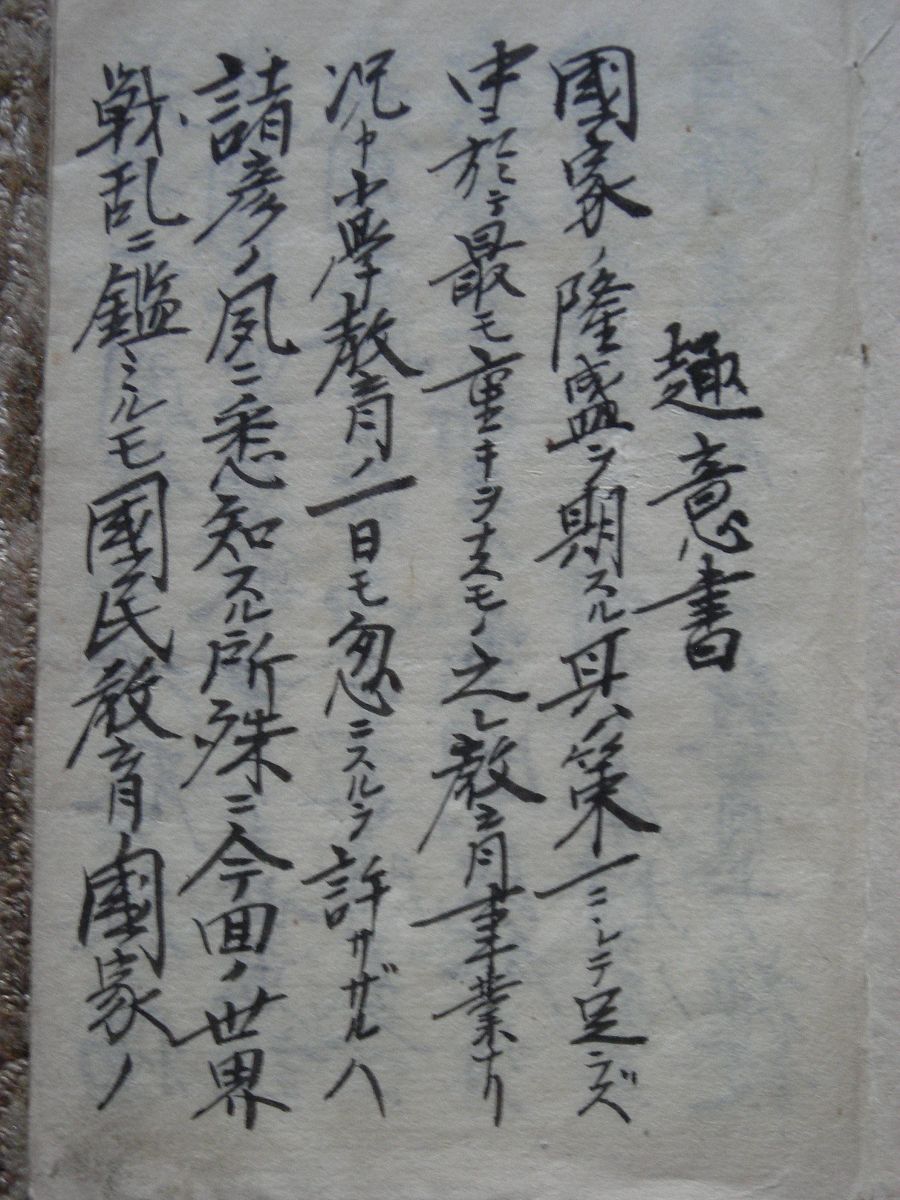 趣意書
國家ノ隆盛ヲ期スル具ハ策一ニシテ足ラズ
中ニ於テ最モ重キヲナスモノ之レ教育事業ナリ
况ヤ小學教育ノ一日モ忽ニスルヲ許サザルハ
諸彦ノ夙ニ悉知スル所殊ニ今回ノ世界
戦乱ニ鑑ミルモ國民教育ノ國家ノ